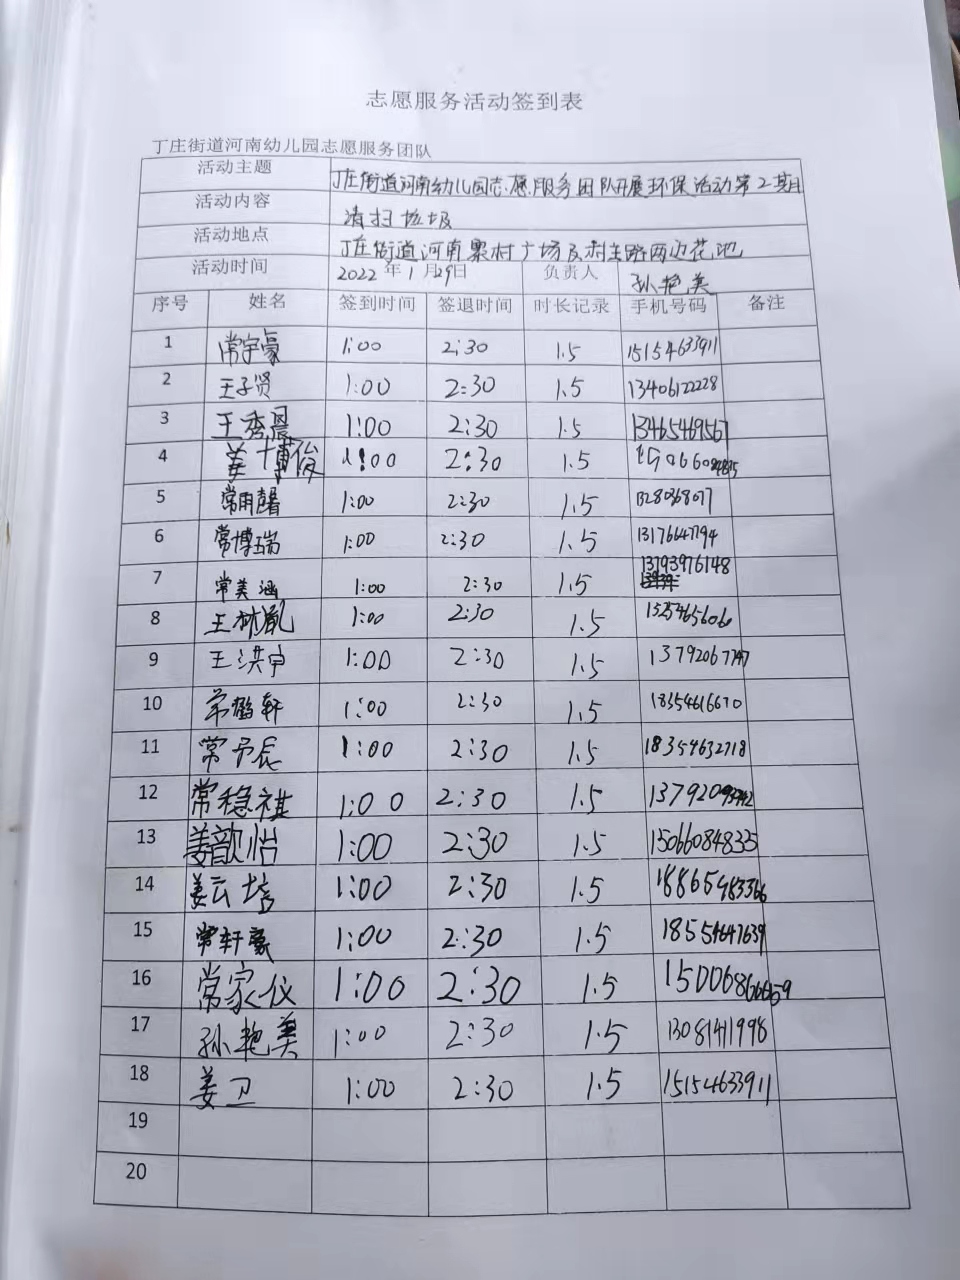 志愿服务活动签到表
丁庄街道河南幼儿园志愿服务团队
活动主题 丁庄街道河南幼儿园志愿服务团队开展环保活动第2期
活动内容 清扫垃圾
活动地点 丁庄街道河南 村广场及村主路两边花池
活动时间 2022年1月29日 负责人 孙艳美
序号 姓名 签到时间 签退时间 时长记录 手机号码 备注
1 常宇豪 1:00 2:30 1.5 15154633911
2 王子贤 1:00 2:30 1.5 13406122228
3 王秀晨 1:00 2:30 1.5 13465469567
4 姜博俊 1:00 2:30 1.5
5 常雨馨 1:00 2:30 1.5
6 常博瑞 1:00 2:30 1.5 13176647794
7 常美涵 1:00 2:30 1.5 13793976148
8 王林胤 1:00 2:30 1.5 15254656060
9 王洪申 1:00 2:30 1.5 13792067747
10 常皓轩 1:00 2:30 1.5 18354616670
11 常予辰 1:00 2:30 1.5 18354632718
12 常稳祺 1:00 2:30 1.5
13 姜歆怡 1:00 2:30 1.5 15066084835
14 姜云培 1:00 2:30 1.5 18865983366
15 常轩豪 1:00 2:30 1.5 18554647639
16 常家仪 1:00 2:30 1.5
17 孙艳美 1:00 2:30 1.5 13081411998
18 姜卫 1:00 2:30 1.5 15154633911
19
20